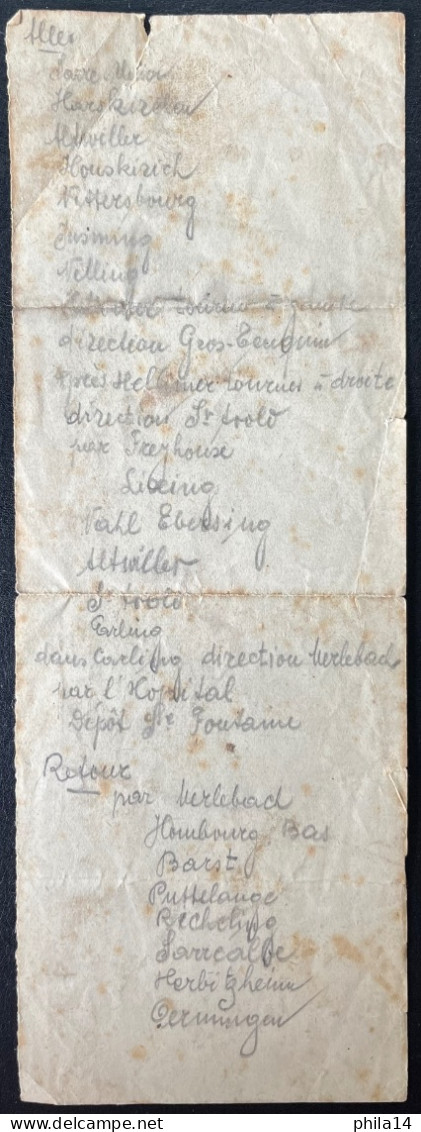 Aller
Sarre Union
Harskirchen
Altwiller
Honskirich
Vittersbourg
Insming
Nelling
tourner à gauche
direction Gros-Tenquin
après Hellimer tourner à droite
direction St Avold
par Freyhouse
Lixing
Vahl Ebersing
Altviller
St Avold
Carling
dans Carling direction Merlebach
par l'Hopital
Dépôt Ste Fontaine
Retour
par Merlebach
Hombourg Bas
Barst
Puttelange
Recheling
Sarralbe
Herbitzheim
Oermingen
Delcampe.net
phila14